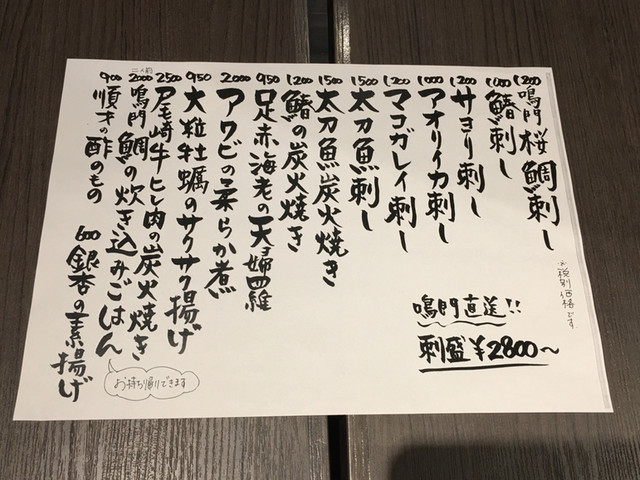 1200 鳴門桜鯛刺し
1000 鰆刺し
1200 サヨリ刺し
1000 アオリイカ刺し
1200 マコガレイ刺し
1500 太刀魚刺し
1500 太刀魚炭火焼き
1200 鰆の炭火焼き
950 足赤海老の天婦羅
2000 アワビの柔らか煮
950 大粒牡蠣のサクサク揚げ
2500 尾崎牛ヒレ肉の炭火焼き
二人前
2000 鳴門鯛の炊き込みごはん
お持ち帰りできます
900 順才の酢のもの
600 銀杏の素揚げ
※税別価格です
鳴門直送!!
刺盛¥2800〜